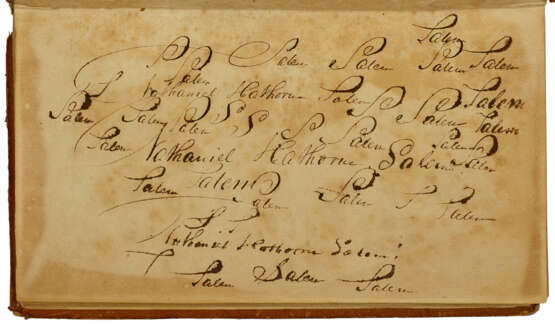 Salem
Salem Salem Salem Salem
Salem
Nathaniel Hathorne Salem Salem
Salem Salem Salem S S Salem Salem
Salem Salem Salem
Nathaniel Hathorne Salem Salem
Salem Salem Salem
Salem Salem
Nathaniel Hathorne Salem
Salem Salem Salem